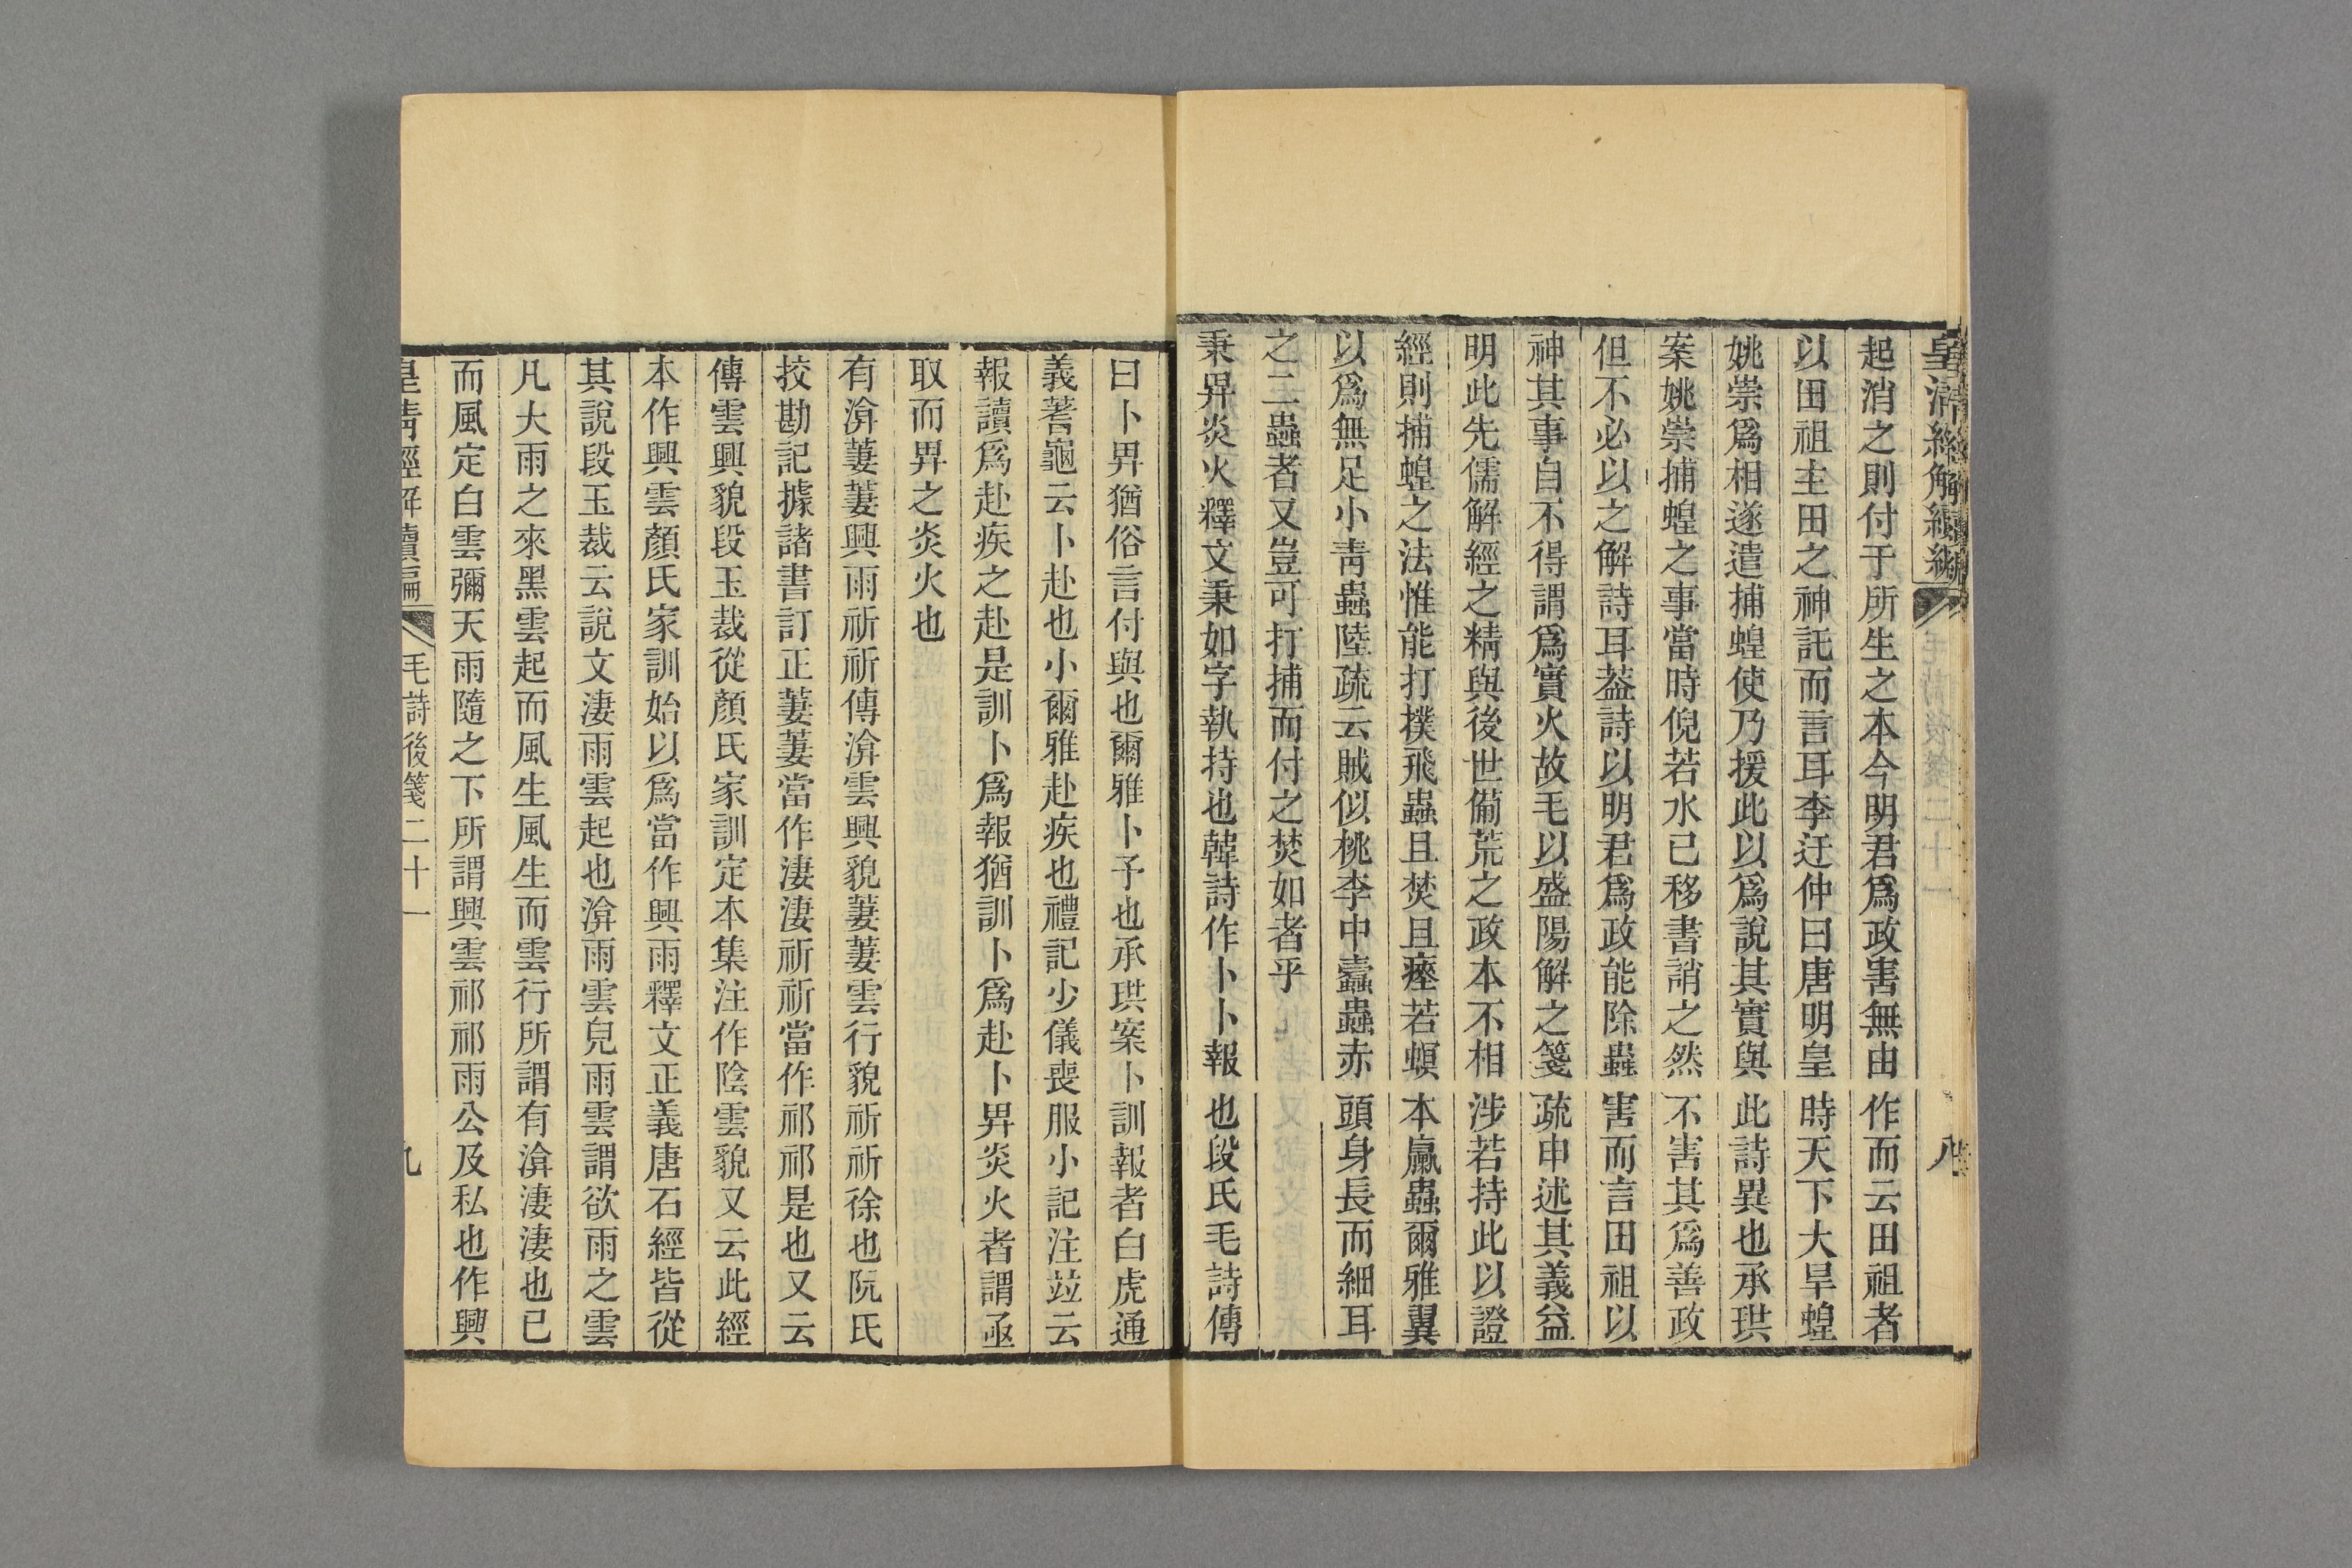 皇清經解續編
八
起消之則付于所生之本今明君爲政害無由作而云田祖者
以田祖主田之神託而言耳李迂仲曰唐明皇時天下大旱蝗
姚崇爲相遂遣捕蝗使乃援此以爲說其實與此詩異也承珙
案姚崇捕蝗之事當時倪若水已移書誚之然不害其爲善政
但不必以之解詩耳葢詩以明君爲政能除蟲害而言田祖以
神其事自不得謂爲實火故毛以盛陽解之箋疏申述其義益
明此先儒解經之精與後世備荒之政本不相涉若持此以證
經則捕蝗之法惟能打撲飛蟲且焚且瘞若螟本臝蟲爾雅翼
以爲無足小靑蟲陸疏云賊似桃李中蠹蟲赤頭身長而細耳
之二蟲者又豈可打捕而付之焚如者乎
秉畀炎火釋文秉如字執持也韓詩作卜卜報也段氏毛詩傳
曰卜畀猶俗言付與也爾雅卜予也承珙案卜訓報者白虎通
義蓍龜云卜赴也小爾雅赴疾也禮記少儀喪服小記注竝云
報讀爲赴疾之赴是訓卜爲報猶訓卜爲赴卜畀炎火者謂亟
取而畀之炎火也
有渰萋萋興雨祈祈傳渰雲興貌萋萋雲行貌祈祈徐也阮氏
挍勘記據諸書訂正萋萋當作淒淒祈祈當作祁祁是也又云
傳雲興貌段玉裁從顏氏家訓定本集注作陰雲貌又云此經
本作興雲顏氏家訓始以爲當作興雨釋文正義唐石經皆從
其說段玉裁云說文淒雨雲起也渰雨雲皃雨雲謂欲雨之雲
凡大雨之來黑雲起而風生風生而雲行所謂有渰淒淒也已
而風定白雲彌天雨隨之下所謂興雲祁祁雨公及私也作興
皇清經解續編
毛詩後箋二十一
九